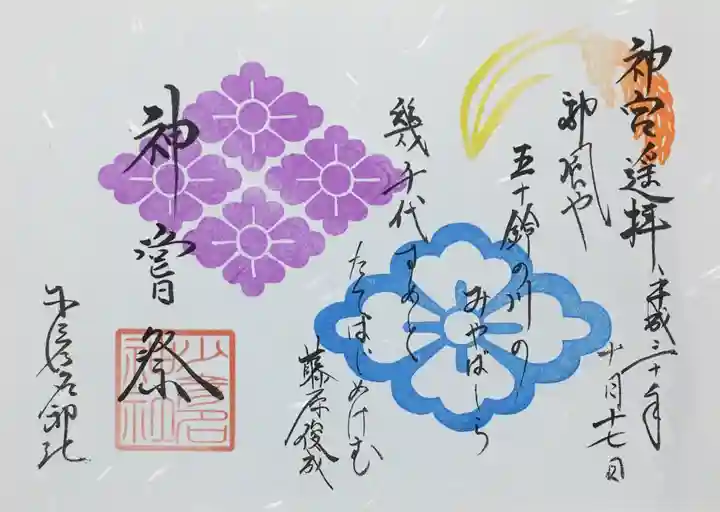 神宮遥拝
平成三十年
十月十七日
神風や
五十鈴の川の
みやばしら
幾千代すめと
たてはじめけむ
藤原俊成
神嘗祭
少彦名神社